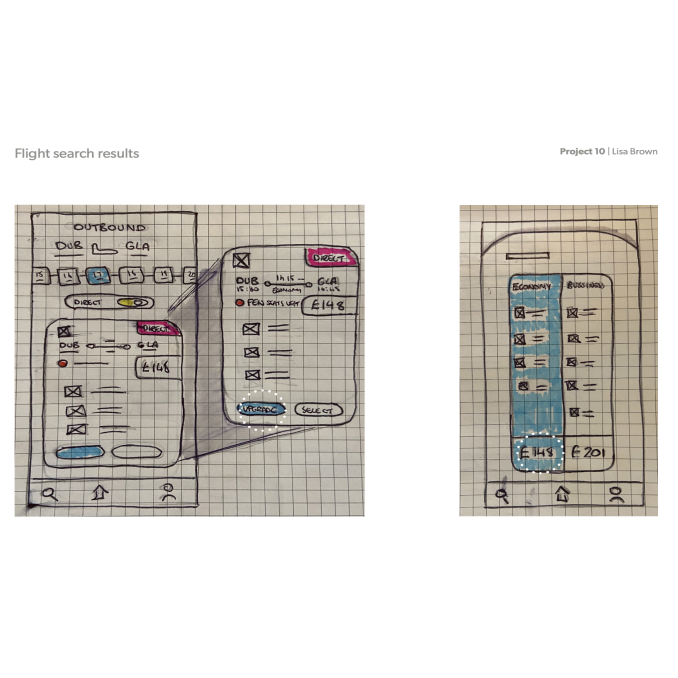 Flight search results
Project 10 | Lisa Brown
OUTBOUND
DUB GLA
15 17
DIRECT
DIRECT
DUB GLA
£148
DIRECT
DUB 1h 15 GLA
Economy
£148
UPGRADE SELECT
ECONOMY BUSSINESS
£148 £201